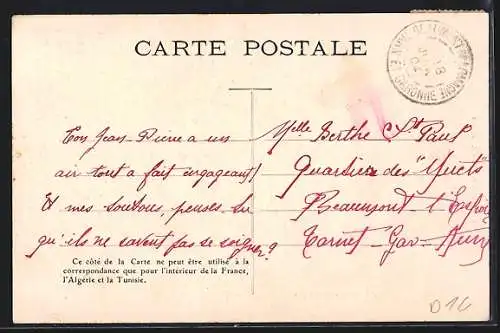 CARTE POSTALE
Ton Jean-Pierre a un
air tout a fait engageant!
Et mes toutous, penses-tu
qu'ils ne savent pas se soigner?
Ce côté de la Carte ne peut être utilisé à la
correspondance que pour l'intérieur de la France,
l'Algérie et la Tunisie.
Melle Berthe St Paul
Quartier des "
Beaumont
Tarn et Gar
D16